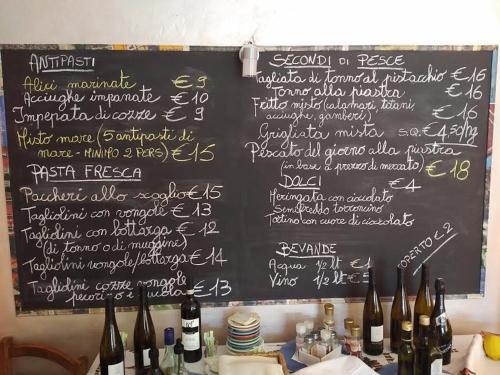 ANTIPASTI
Alici marinate €9
Acciughe impanate €10
Impepata di cozze €9
Misto mare (5 antipasti di
mare - MINIMO 2 PERS) €15
PASTA FRESCA
Paccheri allo scoglio €15
Tagliolini con vongole €13
Tagliolini con bottarga € 12
(di tonno o di muggine)
Tagliolini vongole/bottarga €14
Tagliolini cozze vongole
pecorino e rucola €13
SECONDI DI PESCE
Tagliata di tonno al pistacchio €16
Tonno alla piastra €16
Fritto misto (calamari, totani, €16
acciughe, gamberi)
Grigliata mista S.Q. € 4,50/hg
Pescato del giorno alla piastra
(in base a prezzo di mercato) €18
DOLCI €4
Meringata con cioccolato
Semifreddo torroncino
Tortino con cuore di cioccolato
BEVANDE
Acqua 1/2 lt €1
Vino 1/2 lt €5
COPERTO € 2